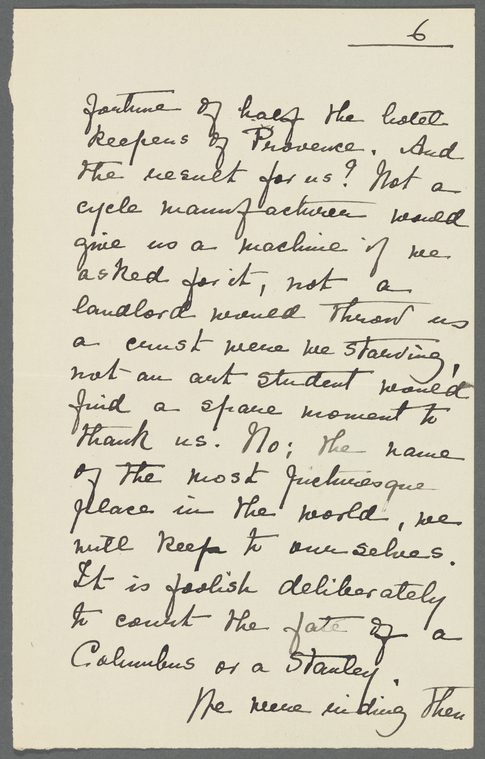 6
fortune of half the hotel
keepers of Provence. And
the result for us? Not a
cycle manufacturer would
give us a machine if we
asked for it, not a
landlord would throw us
a crust were we starving,
not an art student would
find a spare moment to
thank us. No; the name
of the most picturesque
place in the world, we
will keep to ourselves.
It is foolish deliberately
to court the fate of a
Columbus or a Stanley.
We were riding then